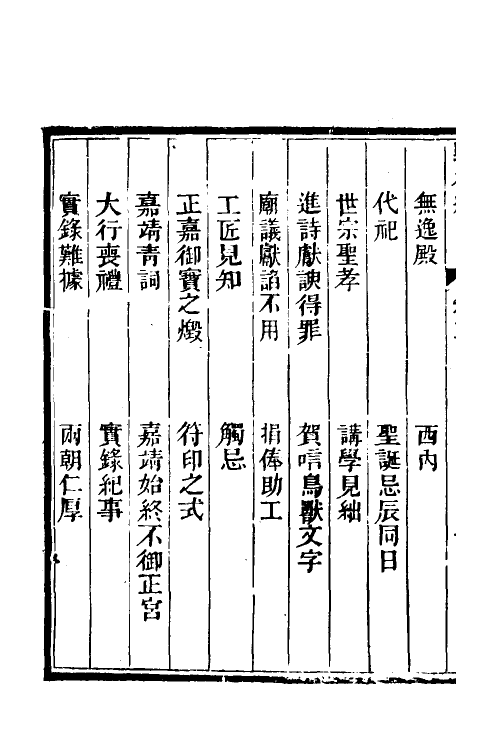 無逸殿　西內
代祀　聖誕忌辰同日
世宗聖孝　講學見絀
進詩獻諛得罪　賀唁鳥獸文字
廟議獻諂不用　捐俸助工
工匠見知　觸忌
正嘉御寶之燬　符印之式
嘉靖靑詞　嘉靖始終不御正宮
大行喪禮　實錄紀事
實錄難據　兩朝仁厚